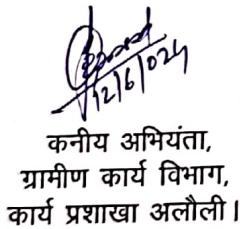 12/6/024
कनीय अभियंता,
ग्रामीण कार्य विभाग,
कार्य प्रशाखा अलौली।